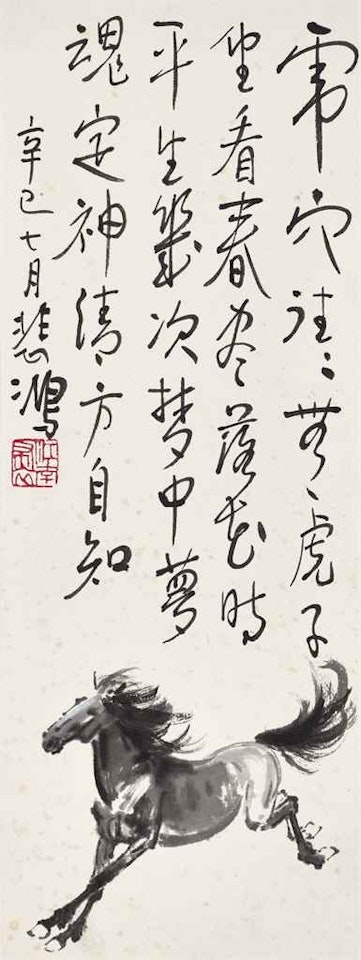 虎穴往〻無虎子
坐看春盡落花時
平生幾次梦中夢
魂定神清方自知
辛巳七月悲鴻